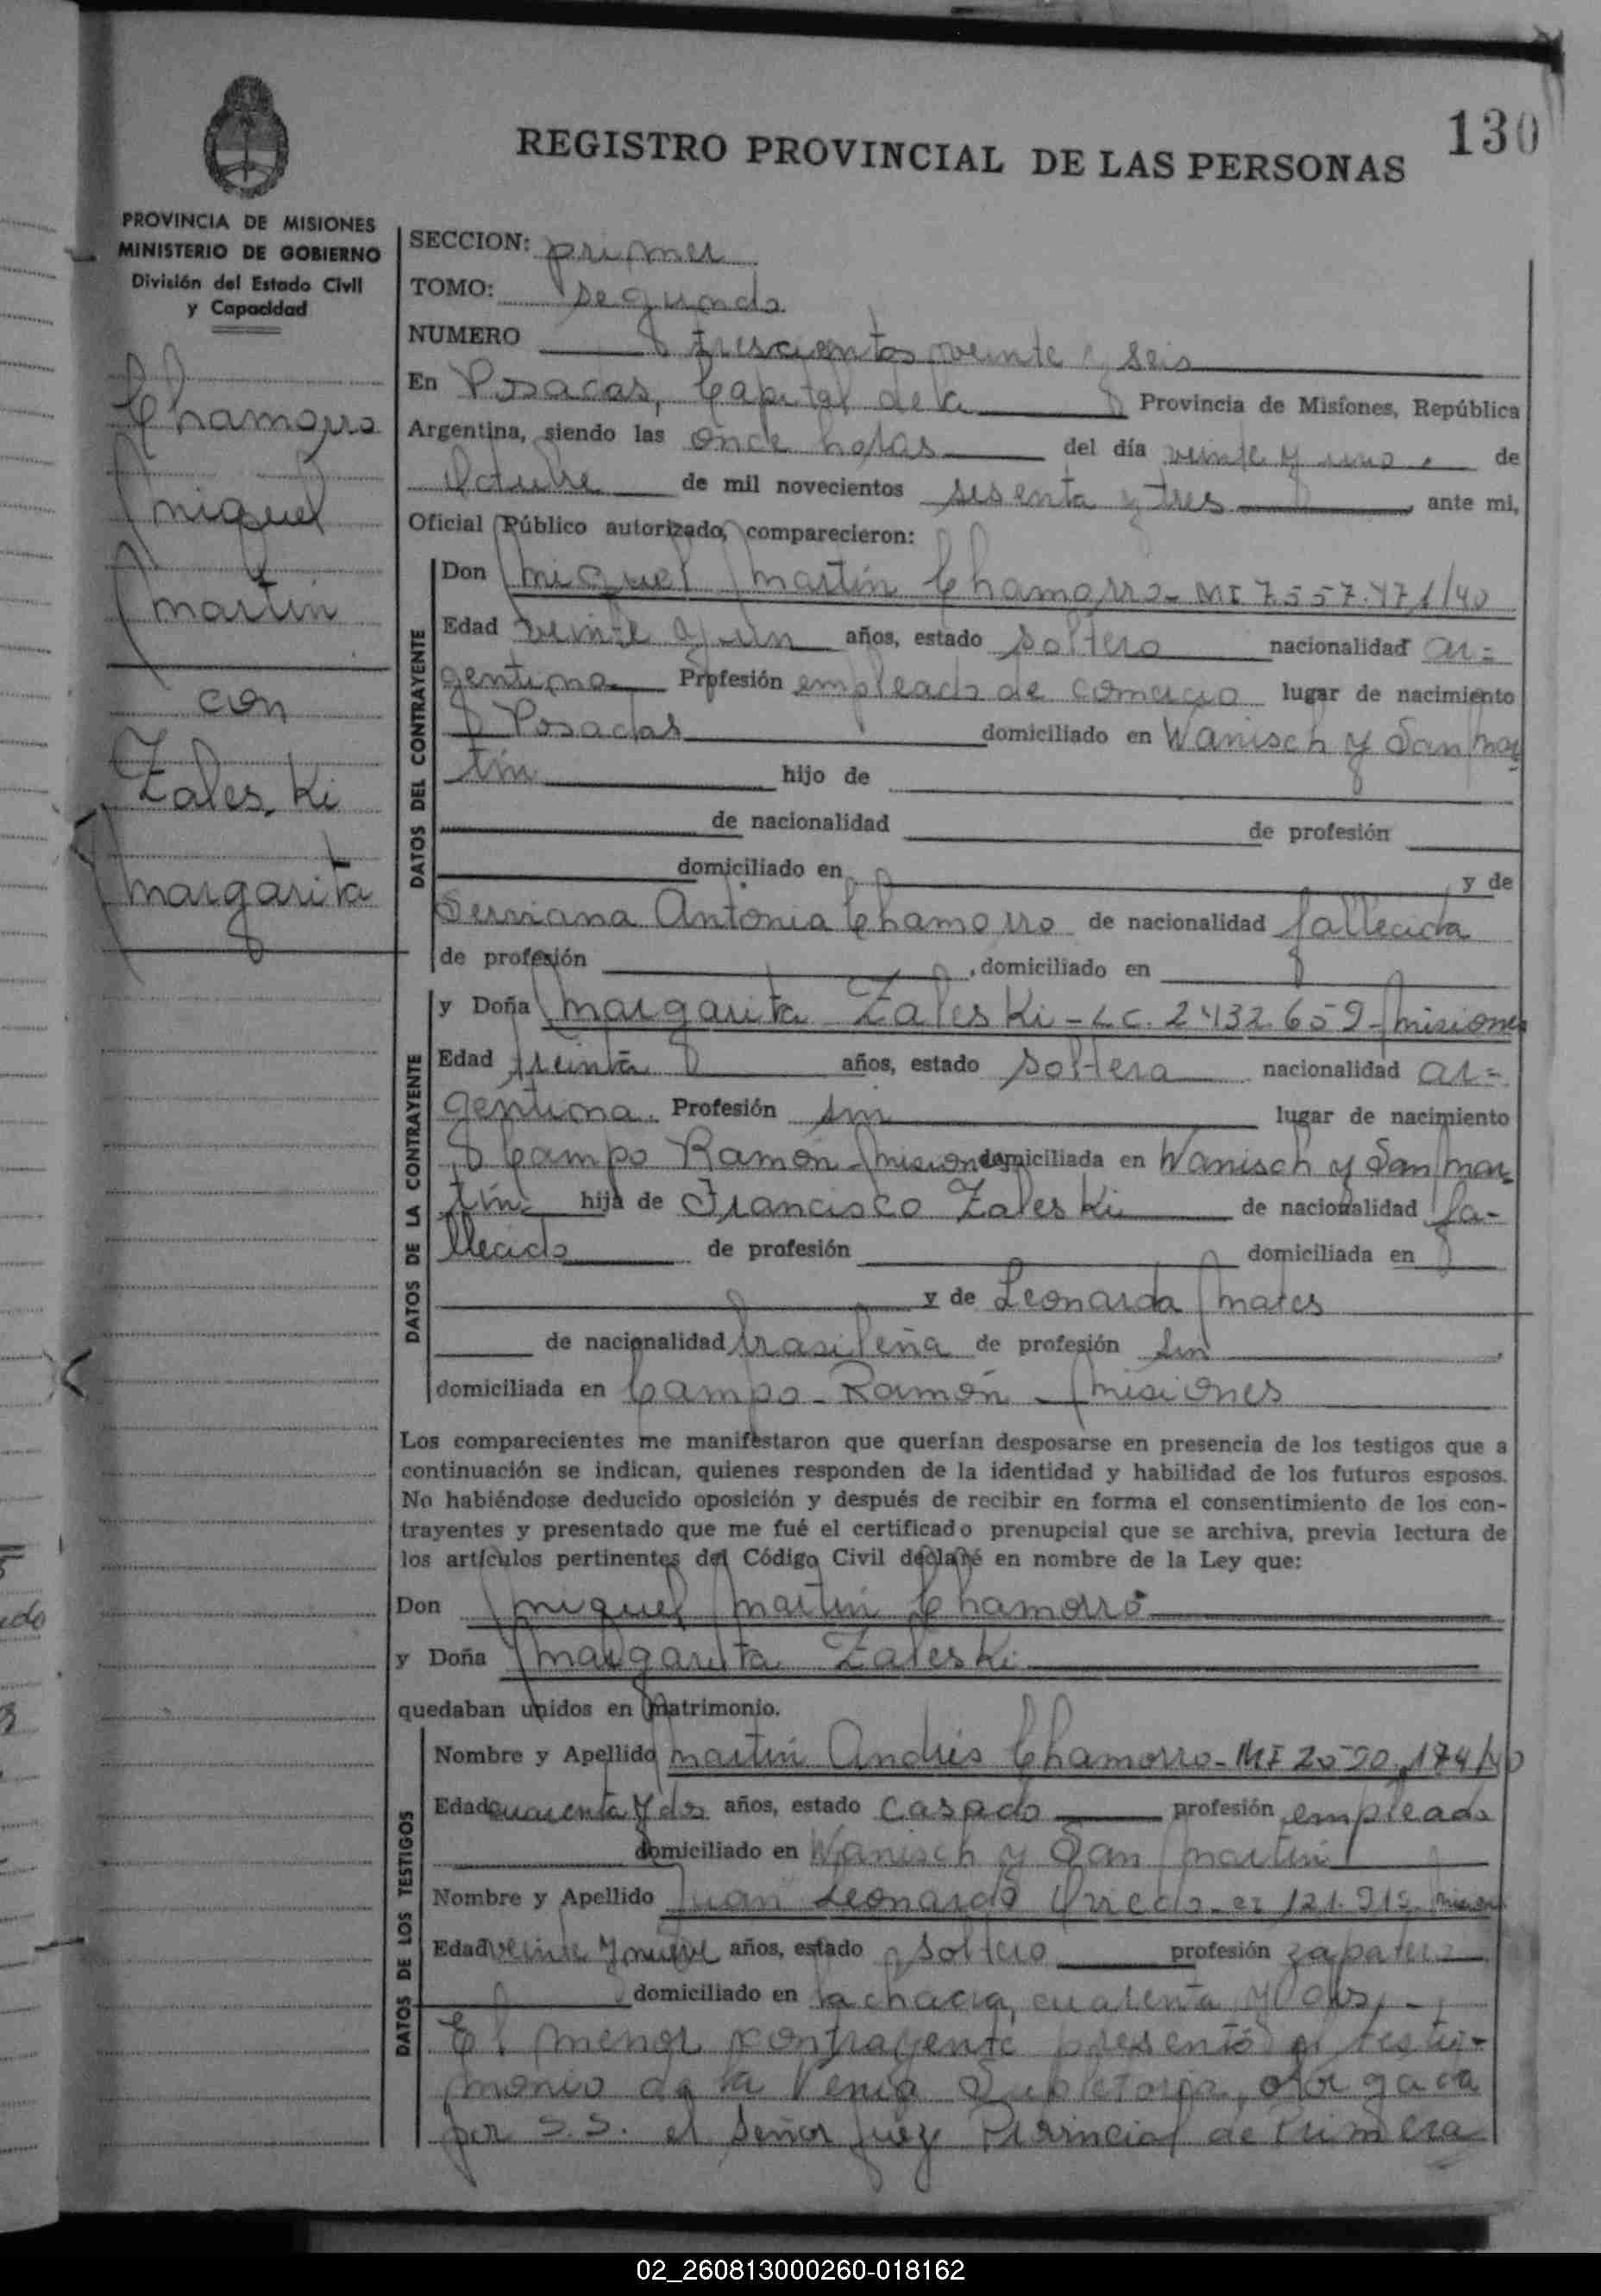 130
REGISTRO PROVINCIAL DE LAS PERSONAS
PROVINCIA DE MISIONES
MINISTERIO DE GOBIERNO
División del Estado Civil
y Capacidad
Chamorro
Miguel
Martin
con
Zaleski
Margarita
SECCION: primer
TOMO: segundo
NUMERO trescientos veinte y seis
En Posadas, Capital de la Provincia de Misiones, República
Argentina, siendo las once horas del día veinte y uno de
Octubre de mil novecientos sesenta y tres ante mi,
Oficial Público autorizado, comparecieron:
DATOS DEL CONTRAYENTE
Don Miguel Martín Chamorro - MI 7.557.471/40
Edad veinte y un años, estado soltero nacionalidad ar=
gentina Profesión empleado de comercio lugar de nacimiento
Posadas domiciliado en Wanisch y San Mar
tín hijo de
de nacionalidad de profesión
domiciliado en y de
Serviana Antonia Chamorro de nacionalidad fallecida
de profesión , domiciliado en
DATOS DE LA CONTRAYENTE
y Doña Margarita Zaleski - LC. 2.432.659 - Misiones
Edad treinta años, estado soltera nacionalidad ar=
gentina. Profesión sin lugar de nacimiento
Campo Ramón - Misiones domiciliada en Wanisch y San Mar
tín hija de Francisco Zaleski de nacionalidad fa-
llecido de profesión domiciliada en
y de Leonarda
de nacionalidad brasileña de profesión sin
domiciliada en Campo - Ramón - Misiones
Los comparecientes me manifestaron que querían desposarse en presencia de los testigos que a
continuación se indican, quienes responden de la identidad y habilidad de los futuros esposos.
No habiéndose deducido oposición y después de recibir en forma el consentimiento de los con-
trayentes y presentado que me fué el certificado prenupcial que se archiva, previa lectura de
los artículos pertinentes del Código Civil declaré en nombre de la Ley que:
Don Miguel Martín Chamorro
y Doña Margarita Zaleski
quedaban unidos en matrimonio.
DATOS DE LOS TESTIGOS
Nombre y Apellido Martín Andrés Chamorro - MI
Edad cuarenta y dos años, estado casado profesión empleado
domiciliado en Wanisch y San Martín
Nombre y Apellido Juan Leonardo
Edad veinte y nueve años, estado soltero profesión zapatero
domiciliado en la chacra, cuarenta y dos,
El menor contrayente presentó el testi-
monio de la Venia Supletoria, otorgada
por S.S. el Señor Juez Provincial de Primera
02_260813000260-018162